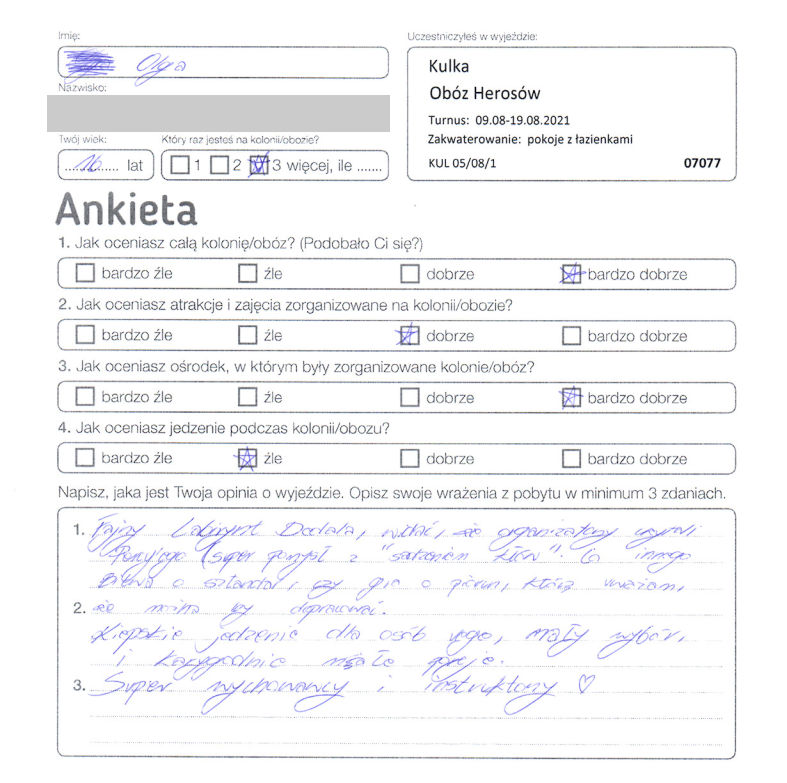 Imię:
Olga
Uczestniczyłeś w wyjeździe:
Kulka
Obóz Herosów
Turnus: 09.08-19.08.2021
Zakwaterowanie: pokoje z łazienkami
KUL 05/08/1 07077
Nazwisko:
Twój wiek:
Który raz jesteś na kolonii/obozie?
16 lat
1 2 3 więcej, ile .......
Ankieta
1. Jak oceniasz całą kolonię/obóz? (Podobało Ci się?)
bardzo źle źle dobrze bardzo dobrze
2. Jak oceniasz atrakcje i zajęcia zorganizowane na kolonii/obozie?
bardzo źle źle dobrze bardzo dobrze
3. Jak oceniasz ośrodek, w którym były zorganizowane kolonie/obóz?
bardzo źle źle dobrze bardzo dobrze
4. Jak oceniasz jedzenie podczas kolonii/obozu?
bardzo źle źle dobrze bardzo dobrze
Napisz, jaka jest Twoja opinia o wyjeździe. Opisz swoje wrażenia z pobytu w minimum 3 zdaniach.
1. Fajny Labirynt Dedala, widać, że organizatorzy
(super pomysł z "sadzeniem kłów". Co innego
Bitwa o sztandar, czy gra o piorun, którą uważam,
2. że można by dopracować.
Kiepskie jedzenie dla osób vege, mały wybór,
i małe porcje.
3. Super wychowawcy i instruktorzy ♡